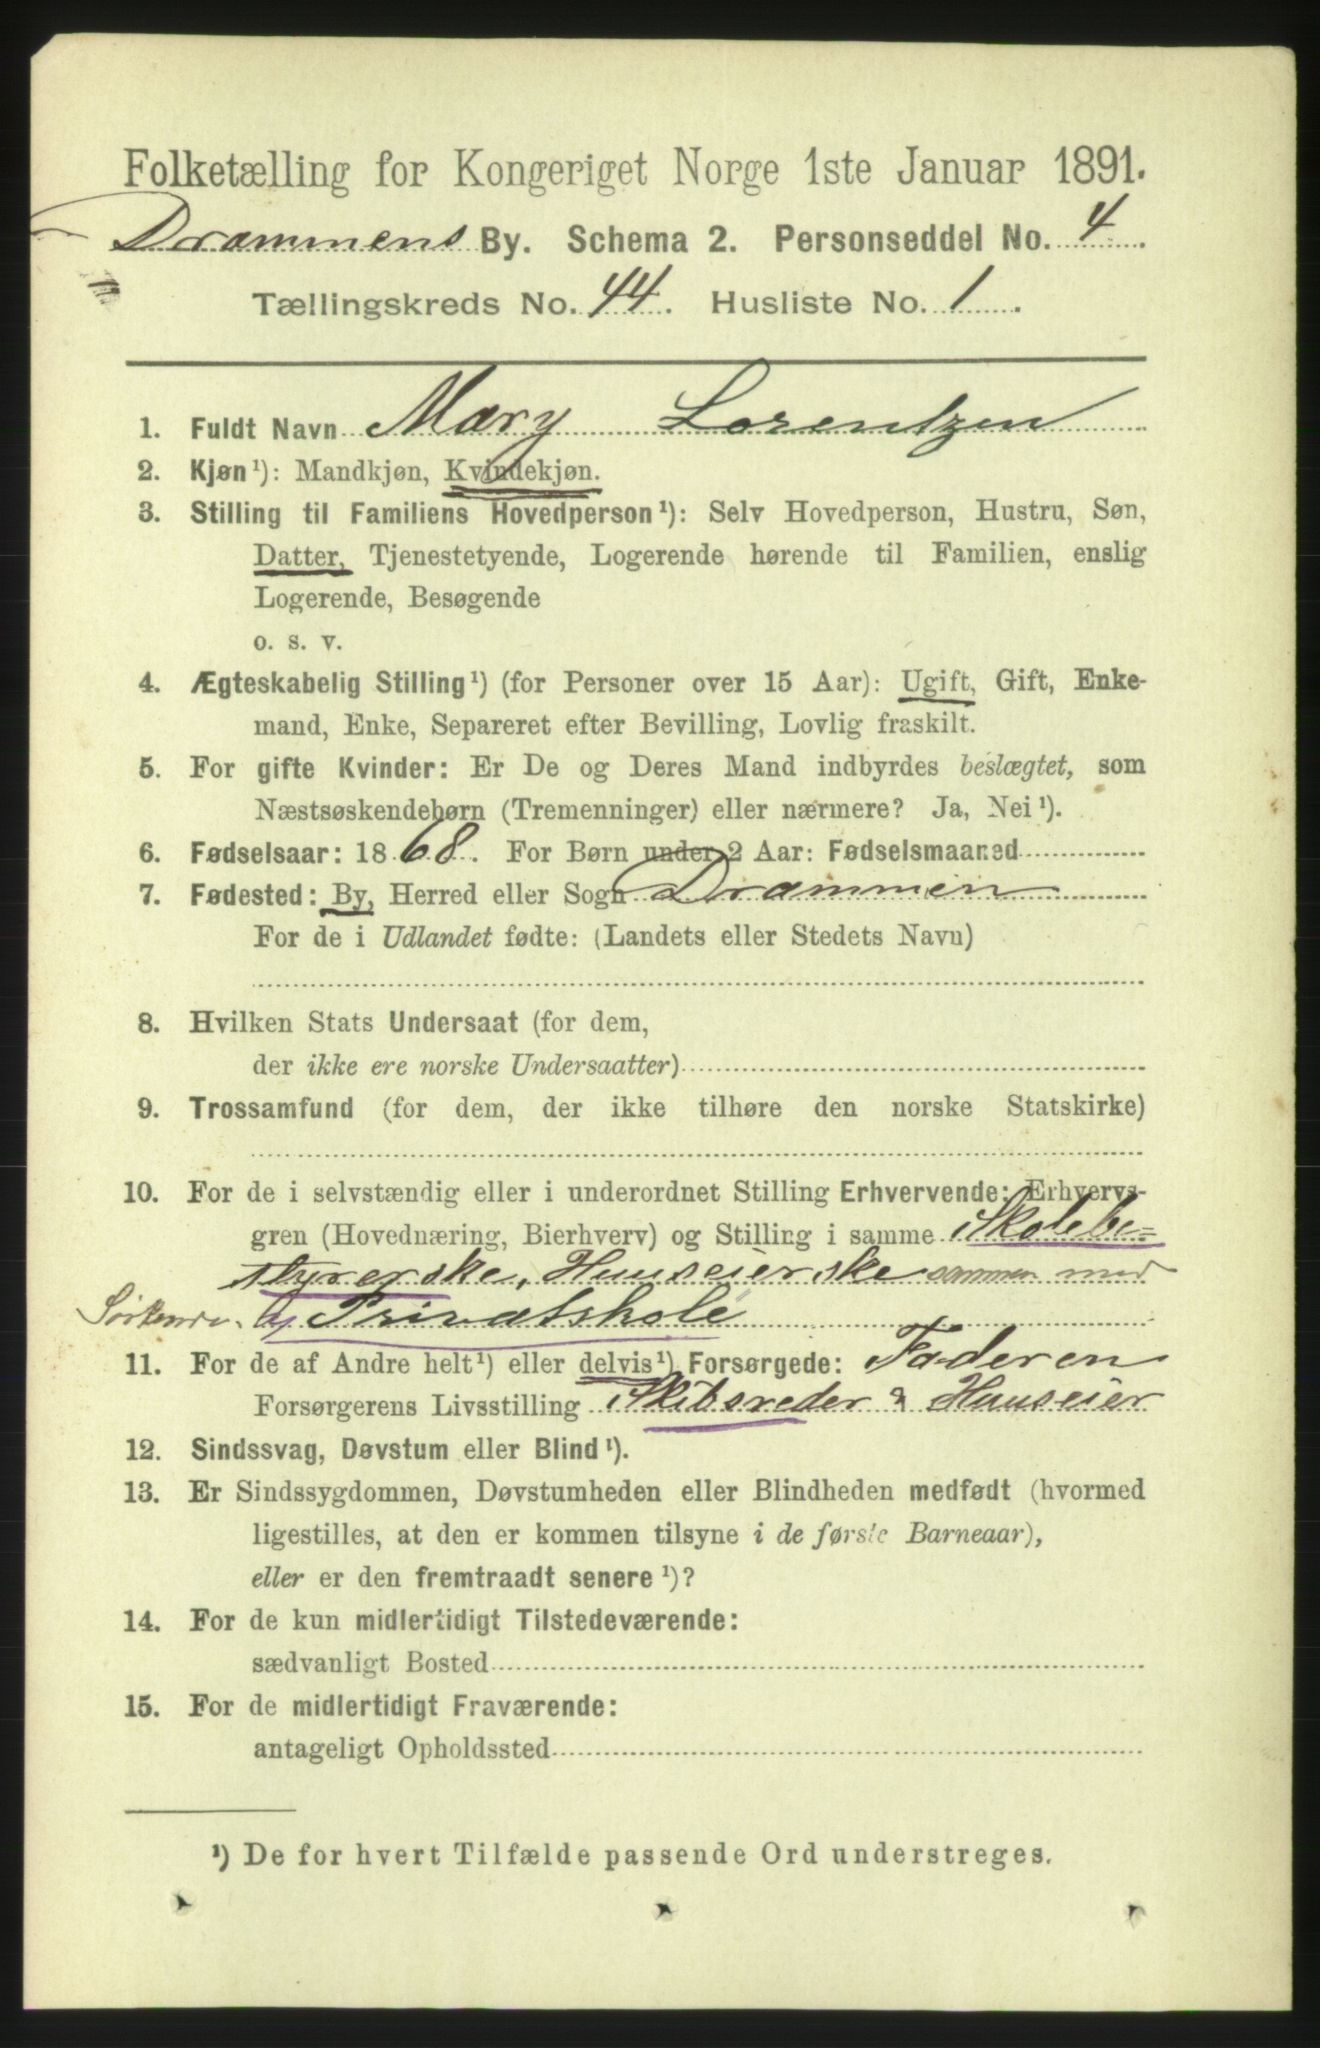 Folketælling for Kongeriget Norge 1ste Januar 1891.
Drammens By. Schema 2. Personseddel No. 4.
Tællingskreds No. 44. Husliste No. 1.
1. Fuldt Navn Mary Lorentzen
2. Kjøn¹): Mandkjøn, Kvindekjøn.
3. Stilling til Familiens Hovedperson¹): Selv Hovedperson, Hustru, Søn,
Datter, Tjenestetyende, Logerende hørende til Familien, enslig
Logerende, Besøgende
o. s. v.
4. Ægteskabelig Stilling¹) (for Personer over 15 Aar): Ugift, Gift, Enke-
mand, Enke, Separeret efter Bevilling, Lovlig fraskilt.
5. For gifte Kvinder: Er De og Deres Mand indbyrdes beslægtet, som
Næstsøskendebørn (Tremenninger) eller nærmere? Ja, Nei¹).
6. Fødselsaar: 1868. For Børn under 2 Aar: Fødselsmaaned
7. Fødested: By, Herred eller Sogn Drammen
For de i Udlandet fødte: (Landets eller Stedets Navn)
8. Hvilken Stats Undersaat (for dem,
der ikke ere norske Undersaatter)
9. Trossamfund (for dem, der ikke tilhøre den norske Statskirke)
10. For de i selvstændig eller i underordnet Stilling Erhvervende: Erhvervs-
gren (Hovednæring, Bierhverv) og Stilling i samme Skolebe=
styrerske, Huuseierske sammen med
Privatskole
11. For de af Andre helt¹) eller delvis¹) Forsørgede: Faderen
Forsørgerens Livsstilling Skibsreder & Huuseier
12. Sindssvag, Døvstum eller Blind¹).
13. Er Sindssygdommen, Døvstumheden eller Blindheden medfødt (hvormed
ligestilles, at den er kommen tilsyne i de første Barneaar),
eller er den fremtraadt senere¹)?
14. For de kun midlertidigt Tilstedeværende:
sædvanligt Bosted
15. For de midlertidigt Fraværende:
antageligt Opholdssted
¹) De for hvert Tilfælde passende Ord understreges.